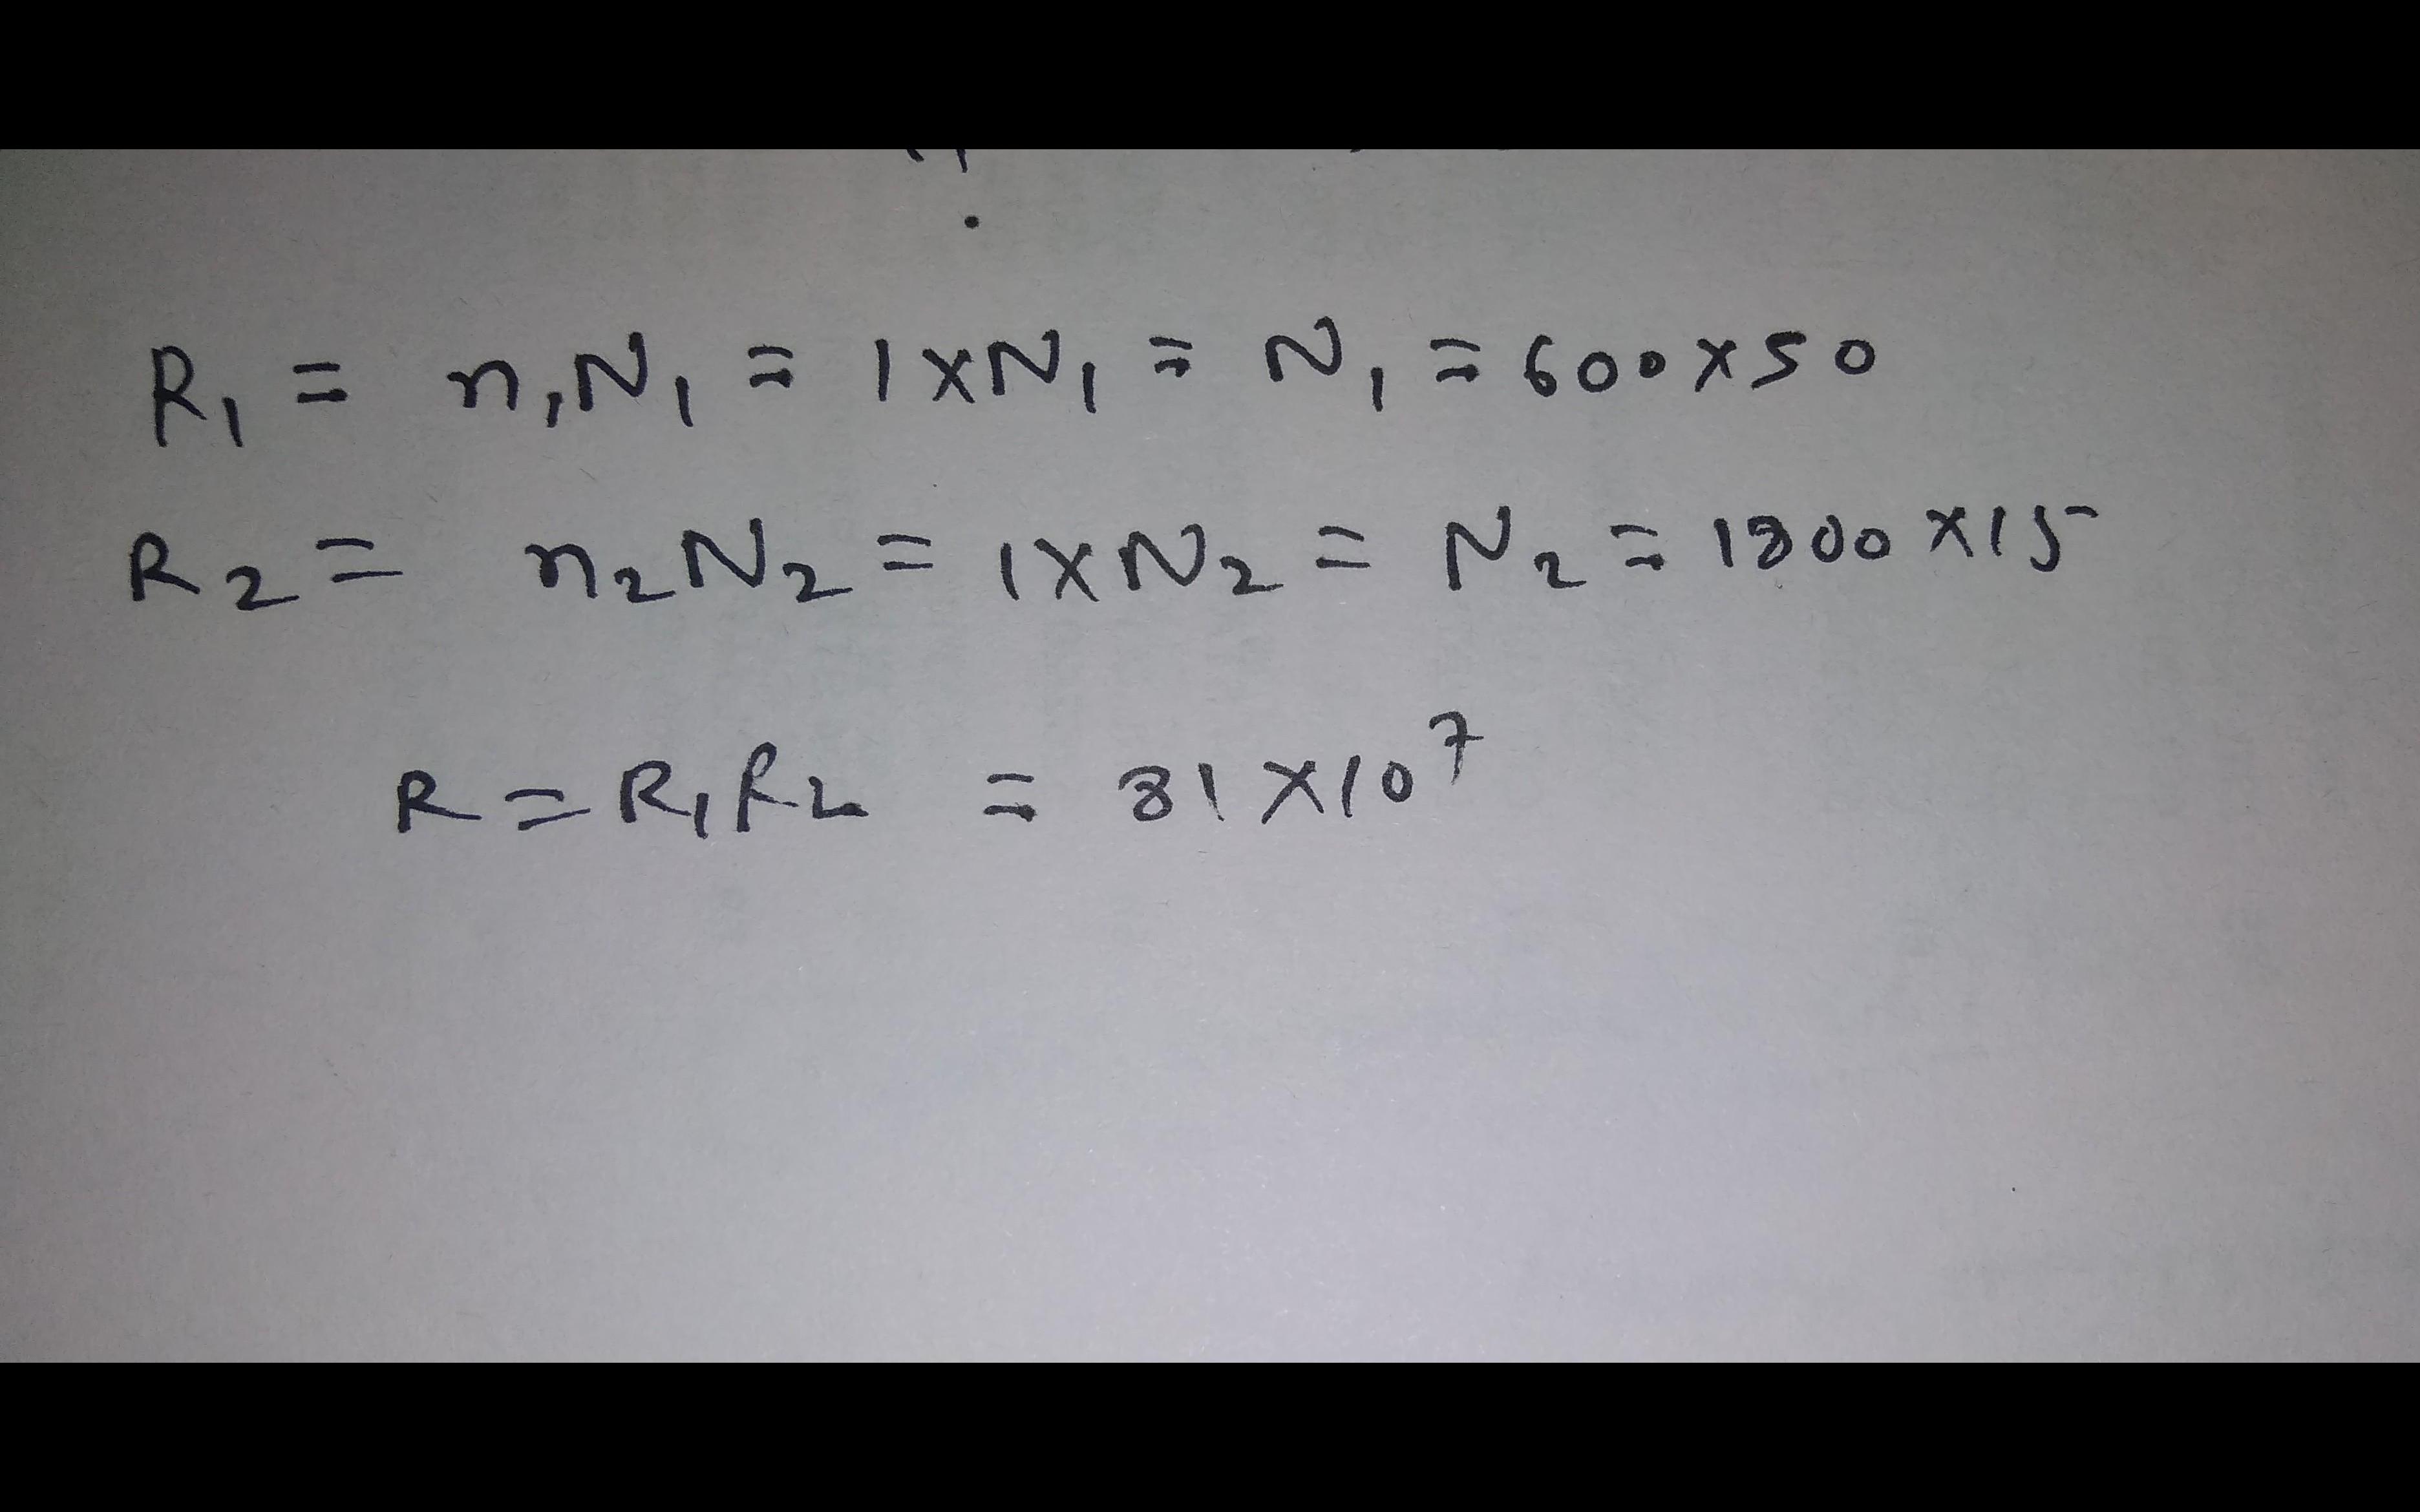 R₁ = n₁N₁ = 1×N₁ = N₁ = 600×50
R₂ = n₂N₂ = 1×N₂ = N₂ = 1800×15
R = R₁R₂ = 81×10⁷